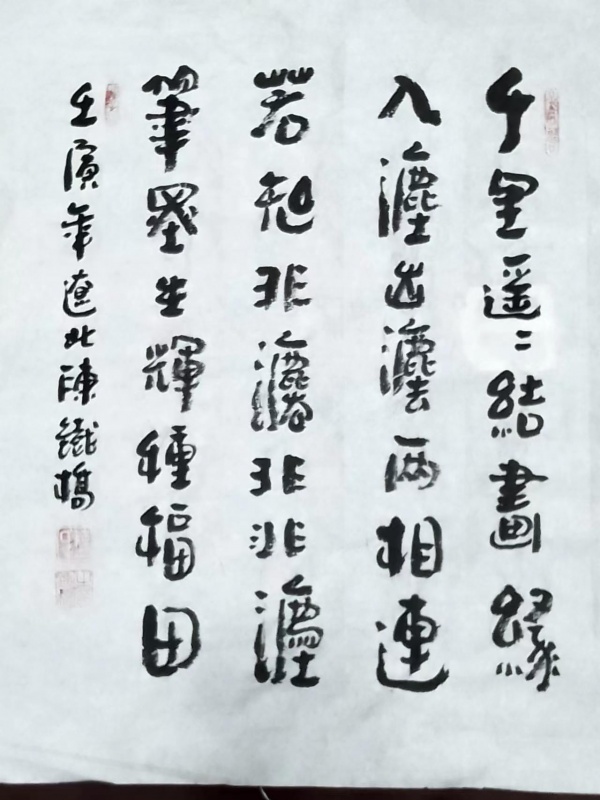 千里遥〻結畫緣
入灋出灋两相連
若知非灋非非灋
筆墨生輝種福田
壬寅年遼北陳鐵橋